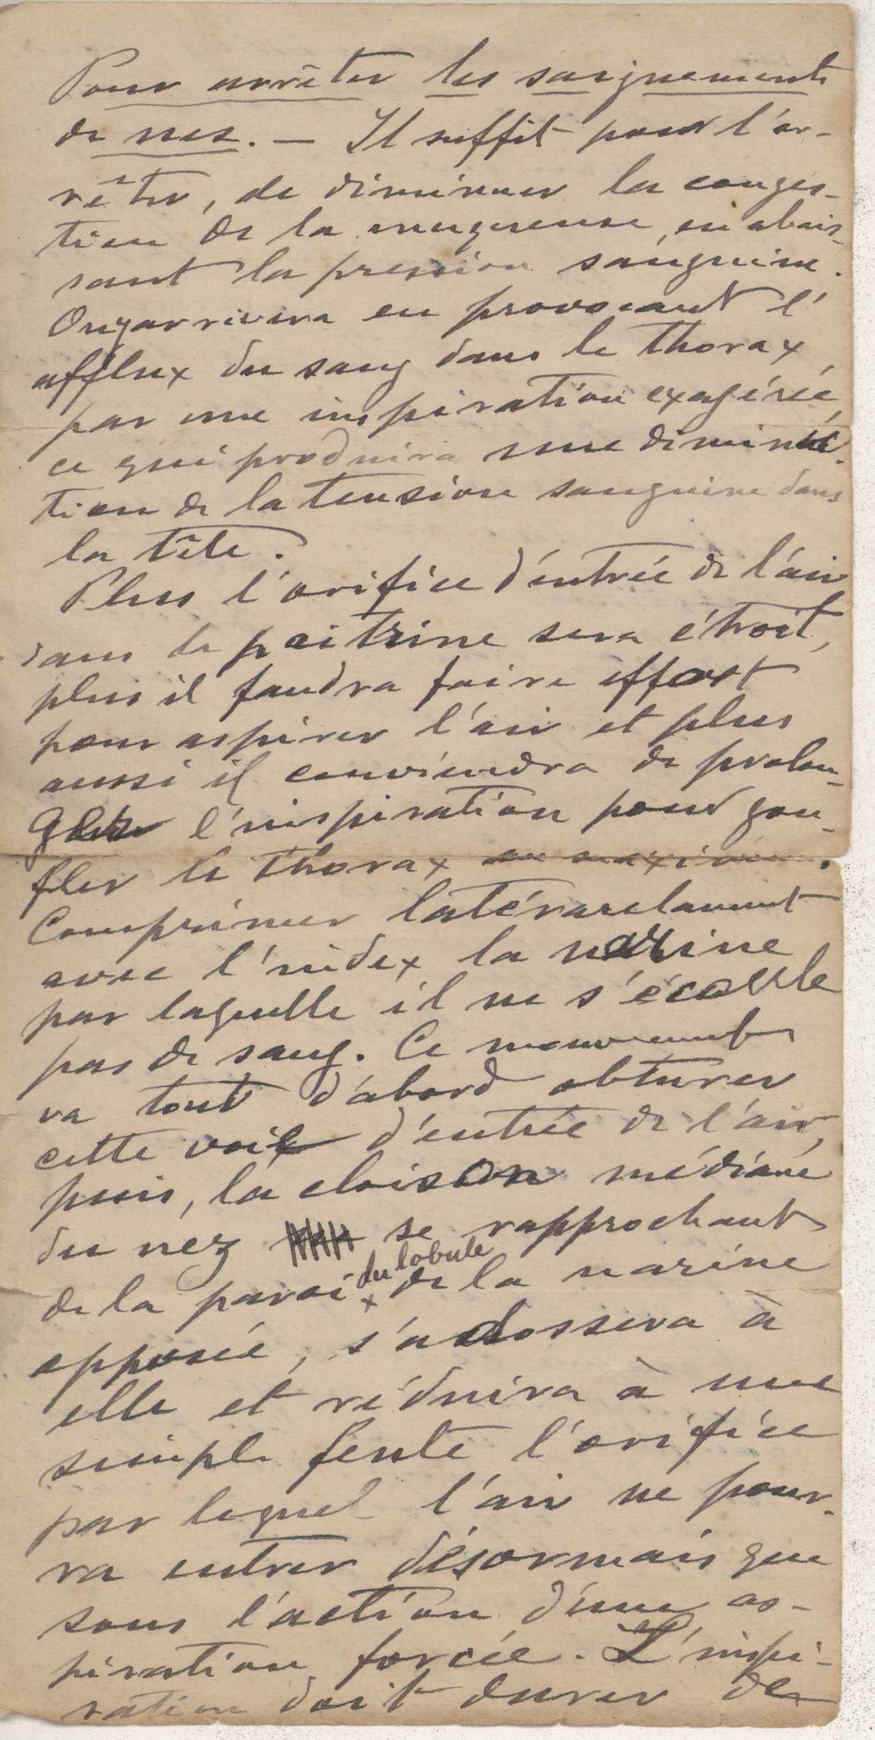 Pour arrêter les saignements
de nez. — Il suffit pour l'ar-
rêter, de diminuer la conges-
tion de la muqueuse en abais-
sant la pression sanguine.
On y arrivera en provocant l'
afflux du sang dans le thorax
par une inspiration exagérée,
ce qui produira une diminu-
tion de la tension sanguine dans
la tête.
Plus l'orifice d'entrée de l'air
dans la poitrine sera étroit,
plus il faudra faire effort
pour aspirer l'air et plus
aussi il conviendra de prolon-
ger l'inspiration pour gon-
fler le thorax au maximum.
Comprimer latéralement
avec l'index la narine
par laquelle il ne s'écoule
pas de sang. Ce mouvement
va tout d'abord obturer
cette voie d'entrée de l'air,
puis, la cloison médiane
du nez se rapprochant
de la paroi du lobule de la narine
opposée, s'adossera à
elle et réduira à une
simple fente l'orifice
par lequel l'air ne pour-
ra entrer désormais que
sous l'action d'une as-
piration forcée. L'inspi-
ration doit durer de